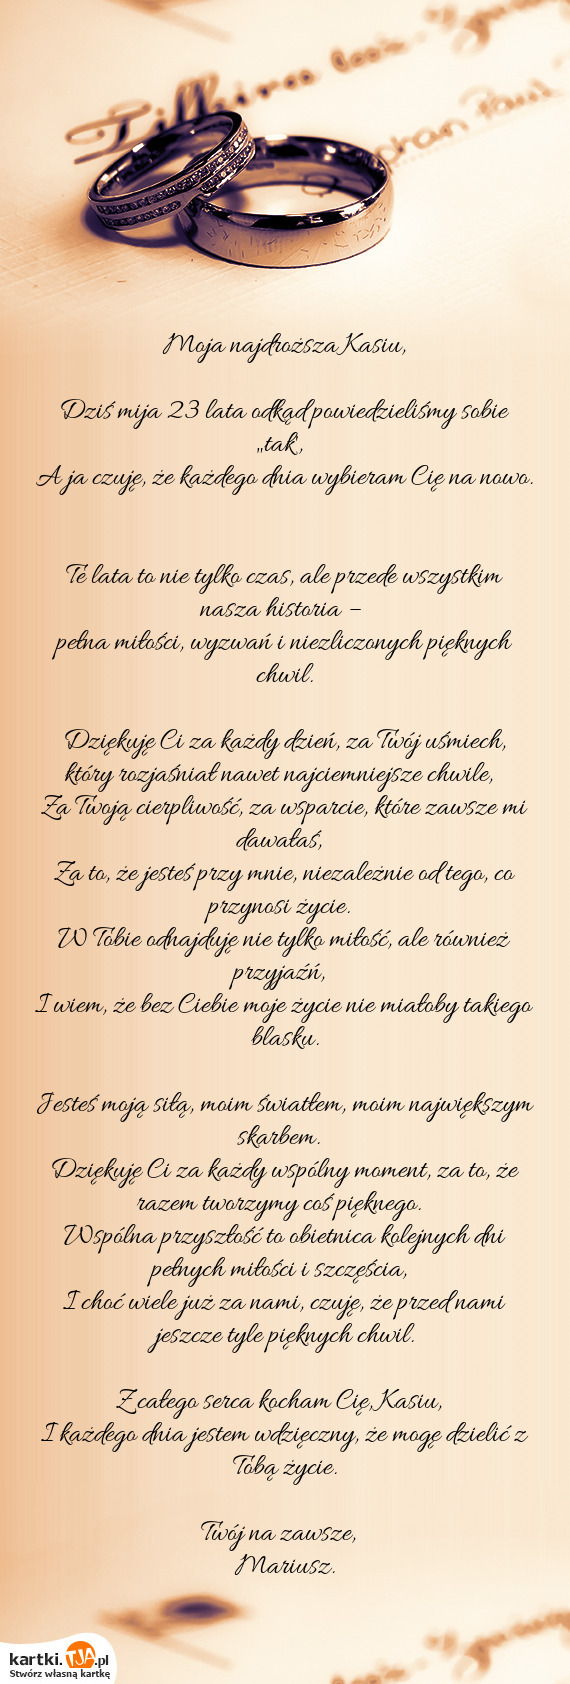 Moja najdroższa Kasiu,
Dziś mija 23 lata odkąd powiedzieliśmy sobie
„tak”,
A ja czuję, że każdego dnia wybieram Cię na nowo.
Te lata to nie tylko czas, ale przede wszystkim
nasza historia –
pełna miłości, wyzwań i niezliczonych pięknych
chwil.
Dziękuję Ci za każdy dzień, za Twój uśmiech,
który rozjaśniał nawet najciemniejsze chwile,
Za Twoją cierpliwość, za wsparcie, które zawsze mi
dawałaś,
Za to, że jesteś przy mnie, niezależnie od tego, co
przynosi życie.
W Tobie odnajduję nie tylko miłość, ale również
przyjaźń,
I wiem, że bez Ciebie moje życie nie miałoby takiego
blasku.
Jesteś moją siłą, moim światłem, moim największym
skarbem.
Dziękuję Ci za każdy wspólny moment, za to, że
razem tworzymy coś pięknego.
Wspólna przyszłość to obietnica kolejnych dni
pełnych miłości i szczęścia,
I choć wiele już za nami, czuję, że przed nami
jeszcze tyle pięknych chwil.
Z całego serca kocham Cię, Kasiu,
I każdego dnia jestem wdzięczny, że mogę dzielić z
Tobą życie.
Twój na zawsze,
Mariusz.
kartki.TJA.pl
Stwórz własną kartkę